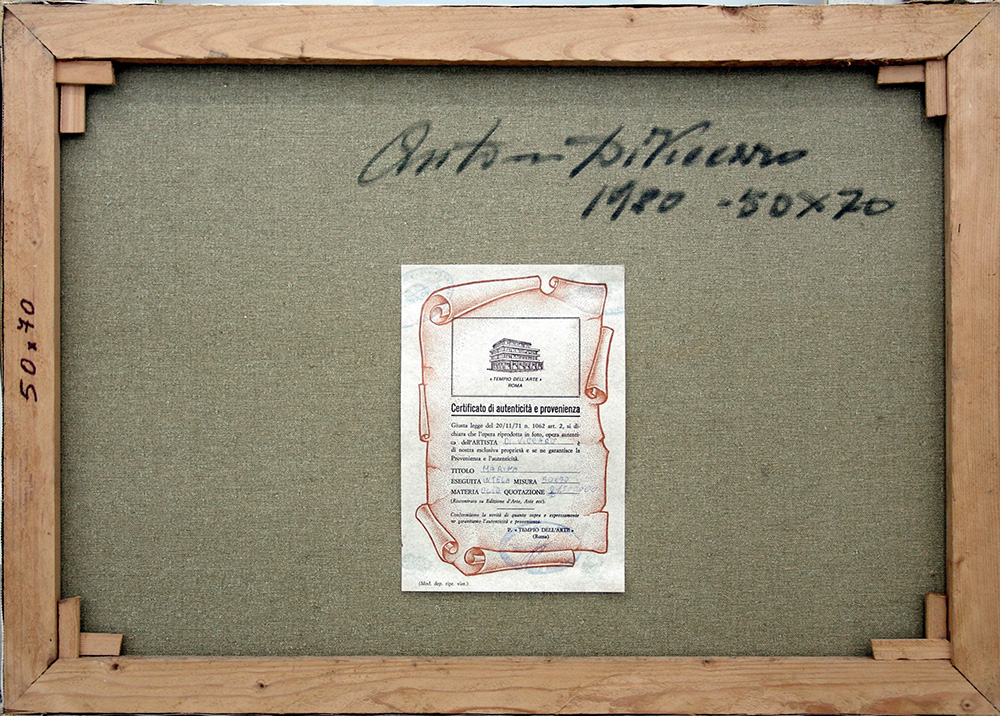 Antonio Di Viccaro
1980 - 50X70
50x70
« TEMPIO DELL'ARTE »
ROMA
Certificato di autenticità e provenienza
Giusta legge del 20/11/71 n. 1062 art. 2, si di-
chiara che l'opera riprodotta in foto, opera autenti-
ca dell'ARTISTA DI VICCARO è
di nostra esclusiva proprietà e se ne garantisce la
Provenienza e l'autenticità.
TITOLO MARINA
ESEGUITA IN TELA MISURA 50x70
MATERIA OLIO QUOTAZIONE
(Riscontrato su Edizione d'Arte, Aste ecc).
Confermiamo la verità di quanto sopra e espressamente
ne garantiamo l'autenticità e provenienza.
P. « TEMPIO DELL'ARTE »
(Roma)
(Mod. dep. ripr. viet.)